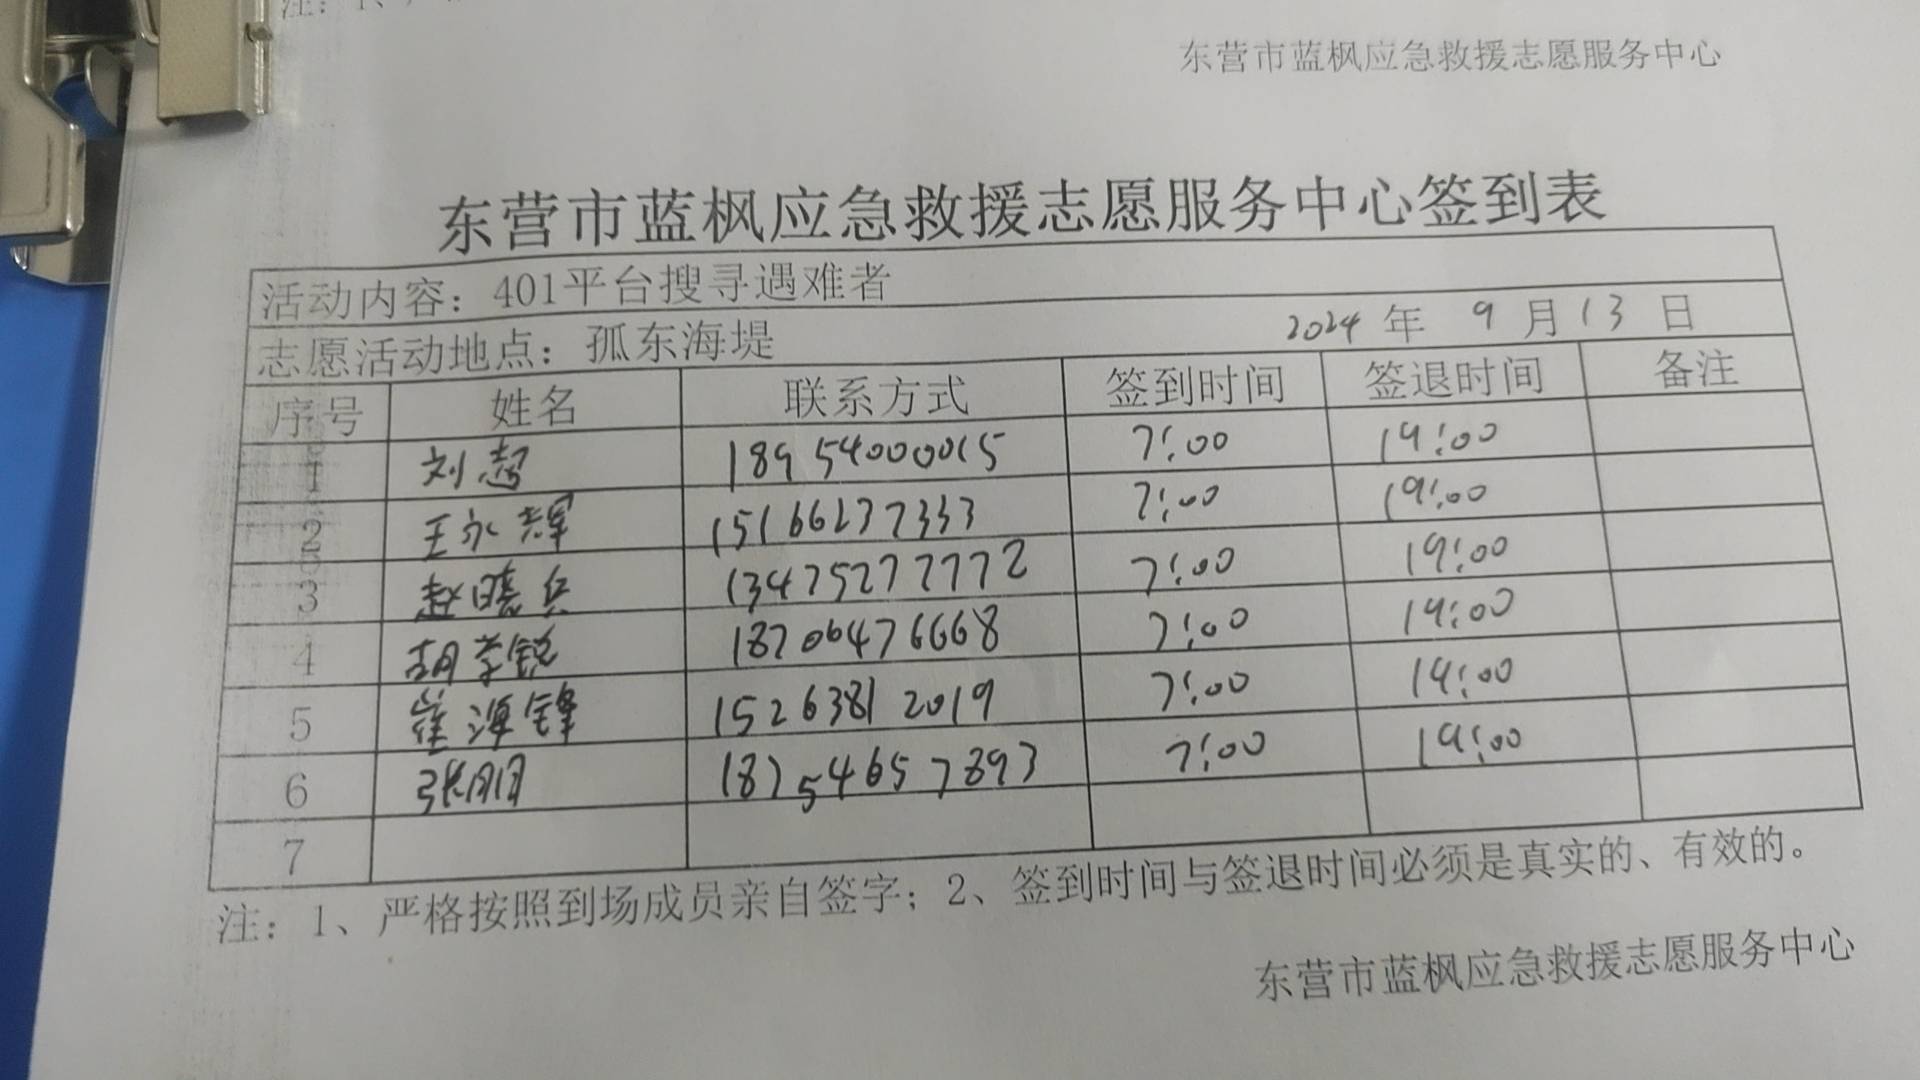 东营市蓝枫应急救援志愿服务中心
东营市蓝枫应急救援志愿服务中心签到表
活动内容：401平台搜寻遇难者
志愿活动地点：孤东海堤 2024 年 9 月 13 日
序号 姓名 联系方式 签到时间 签退时间 备注
1 刘超 18954000015 7:00 19:00
2 王永辉 15166237333 7:00 19:00
3 赵晓兵 13475277772 7:00 19:00
4 胡学锐 18706476668 7:00 19:00
5 崔海锋 15263812019 7:00 19:00
6 张朋 18754657893 7:00 19:00
7
注：1、严格按照到场成员亲自签字；2、签到时间与签退时间必须是真实的、有效的。
东营市蓝枫应急救援志愿服务中心